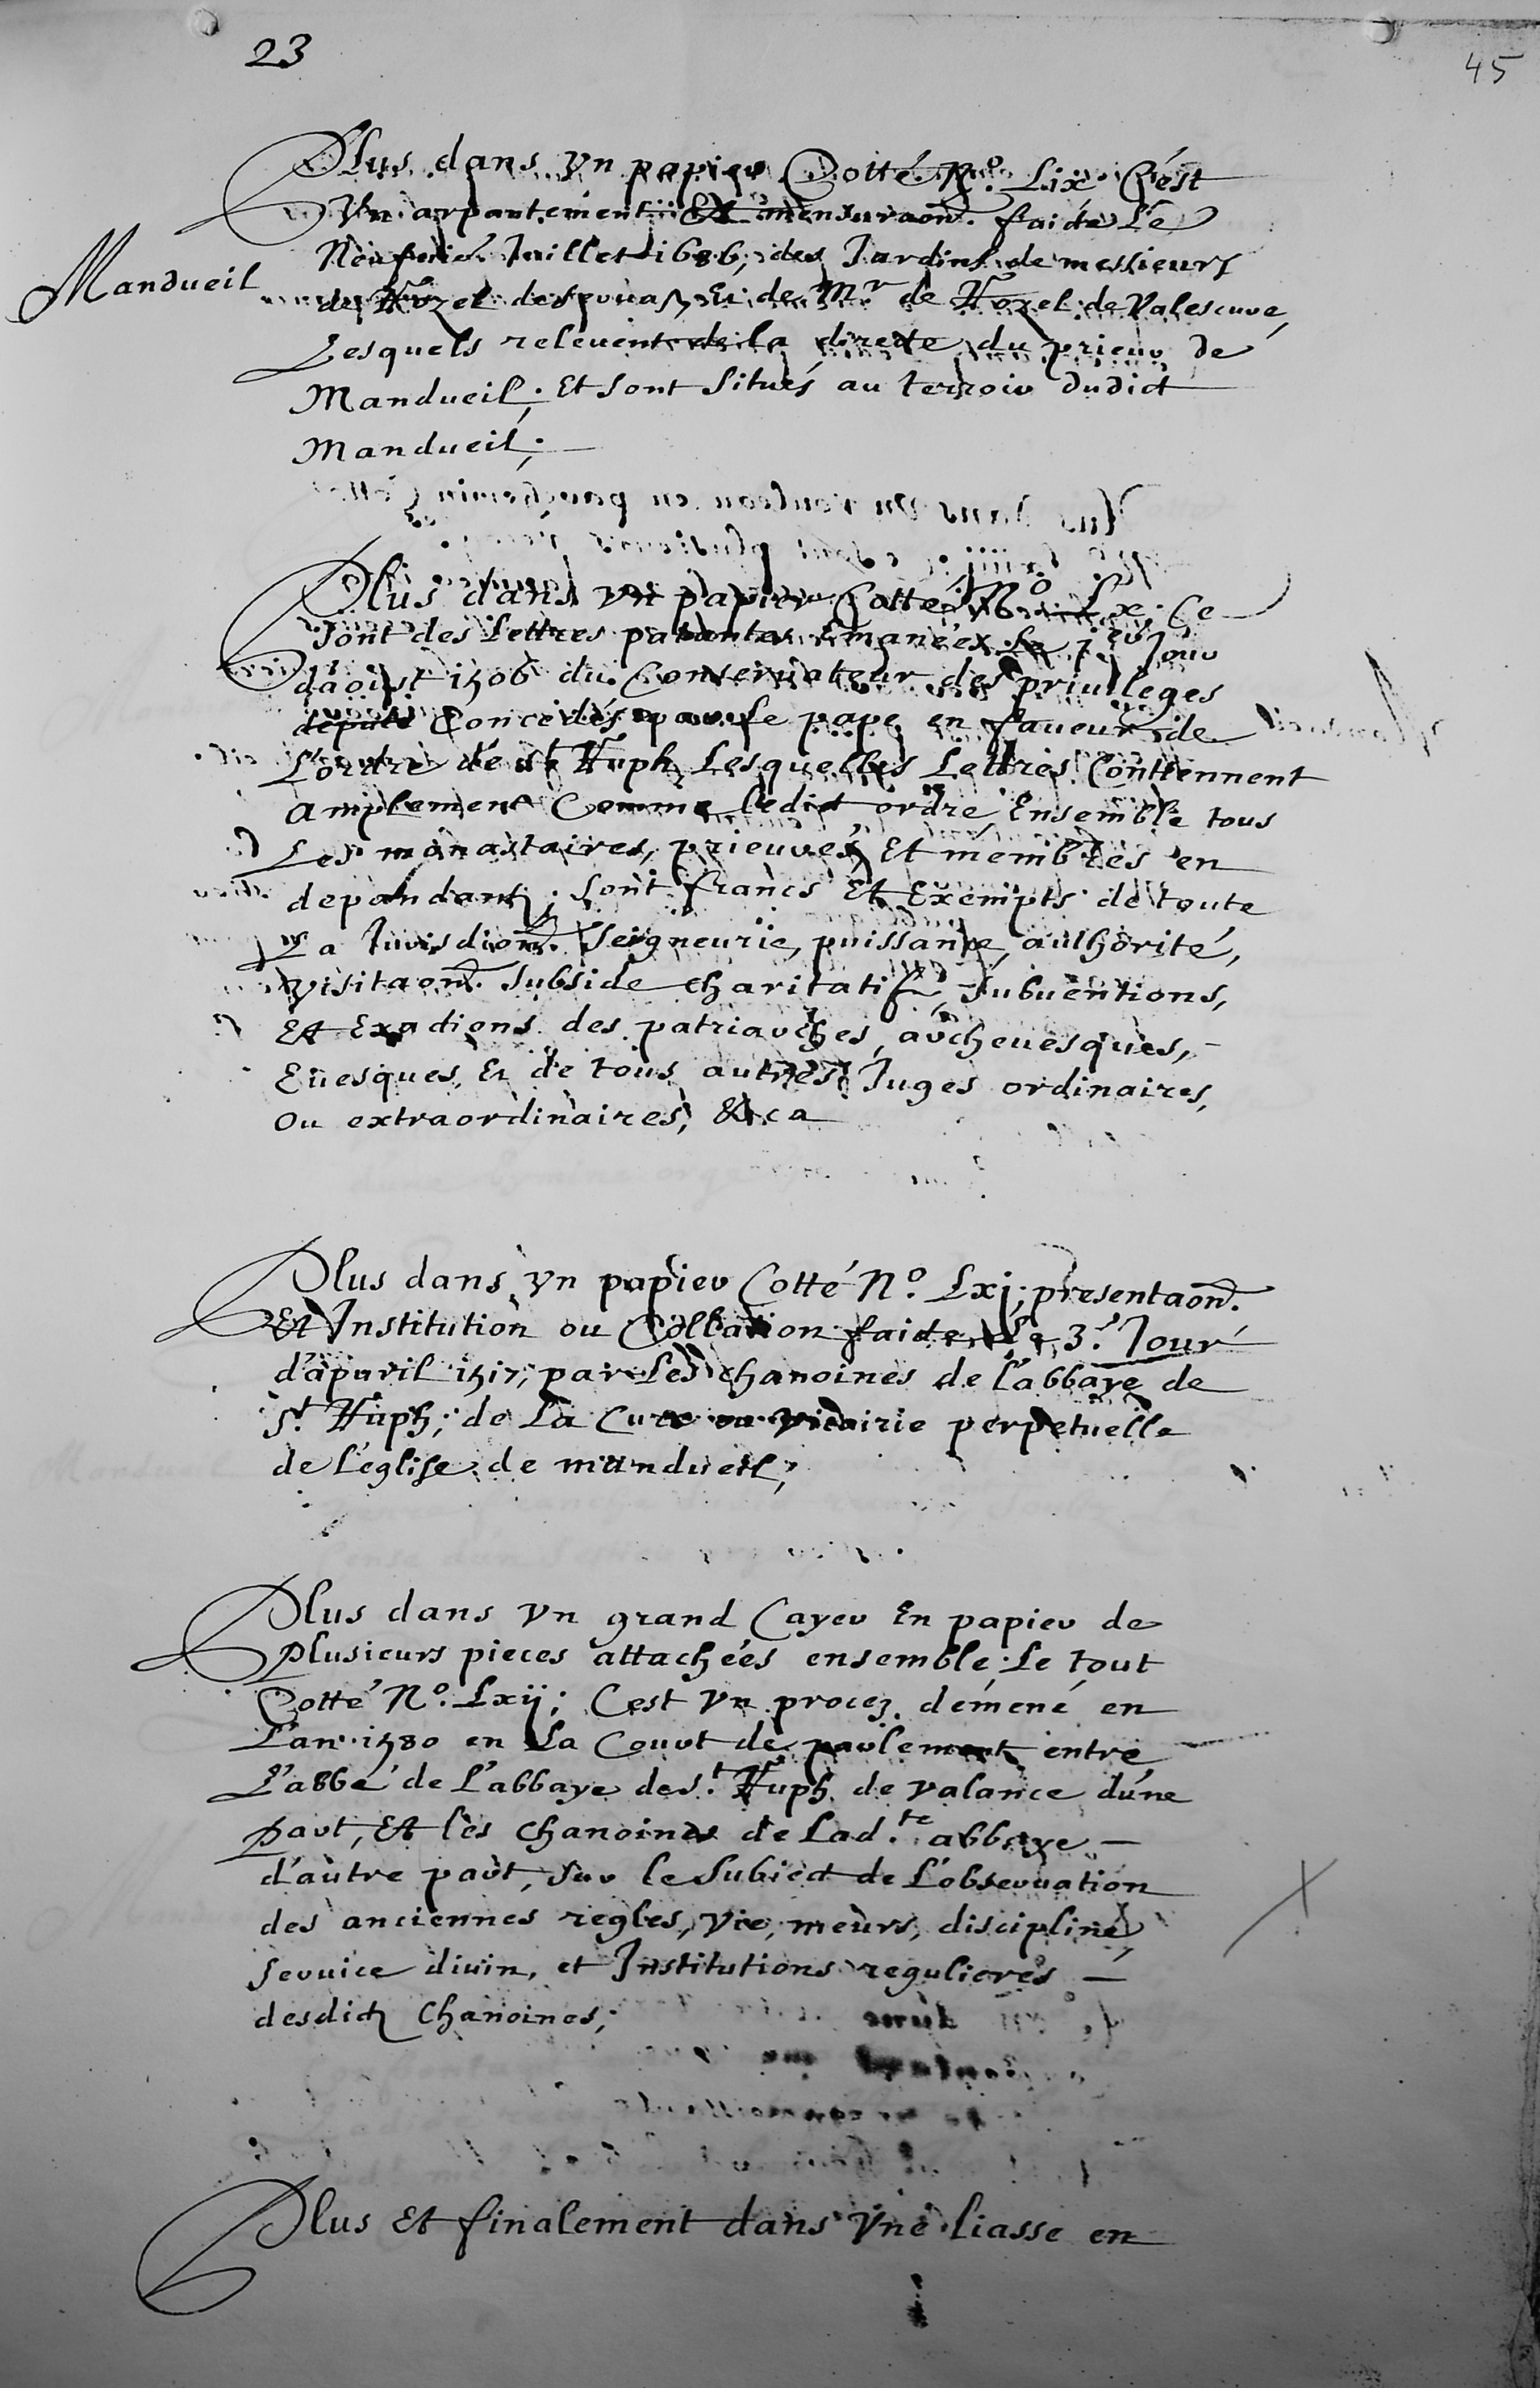 23
45
Plus dans vn papier Cotté N.º Lix C'est
Vn arpantement Et mensuraon. faicte Le
Mandueil
Juillet 1686; des Jardins de messieurs
de Et de Mr de Rozel de Valescure,
Lesquels releuent de la directe du prieur de
Mandueil; Et sont Situés au terroir dudict
Mandueil;
Plus dans vn papier Cotté Nº Lx; Ce
sont des Lettres patantes Emanées Le Jour
d'aoust 1506 du Conseruateur des priuileges
Concedés par Le pape en faueur de
L'ordre de st Ruph Lesquelles Lettres Contiennent
amplement Comme ledict ordre Ensemble tous
Les monastaires, prieurés Et membres en
depandantz; sont francs Et Exempts de toute
La Jurisdion. Seigneurie, puissance, authorité,
visitaon. Subside charitatif, Subuentions,
Et Exactions des patriarches, archeuesques,
Euesques, Et de tous autres Juges ordinaires,
Ou extraordinaires, &ca
Plus dans vn papier Cotté Nº. Lxj; presentaon.
Et Institution ou Collation faicte Le 3.e Jour
d'apuril 1517; par Les chanoines de l'abbaye de
st. Ruph; de La Cure ou vicairie perpetuelle
de L'eglise de mandueil;
Plus dans vn grand Cayer En papier de
Plusieurs pieces attachées ensemble Le tout
Cotté Nº. Lxij; C'est vn procez démené en
L'an 1580 en La Court de parlement entre
L'abbé de L'abbaye de st. Ruph de valance d'une
part, Et les chanoines de Lad.te abbaye —
d'autre part, sur le Subiect de L'obseruation
des anciennes regles, vie, meurs, discipline,
seruice diuin, et Institutions regulieres —
desdictz chanoines;
Plus Et finalement dans vne liasse en